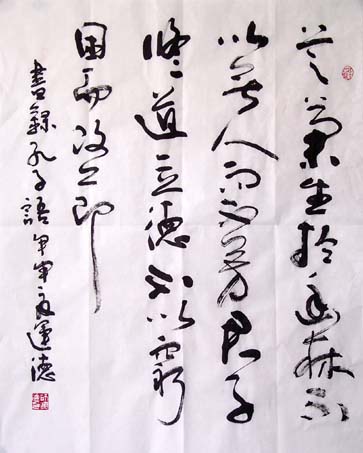 芝蘭生於幽林不
以無人而不芳君子
修道立德不以窮
困而改節
書錄孔子語 甲申 運德